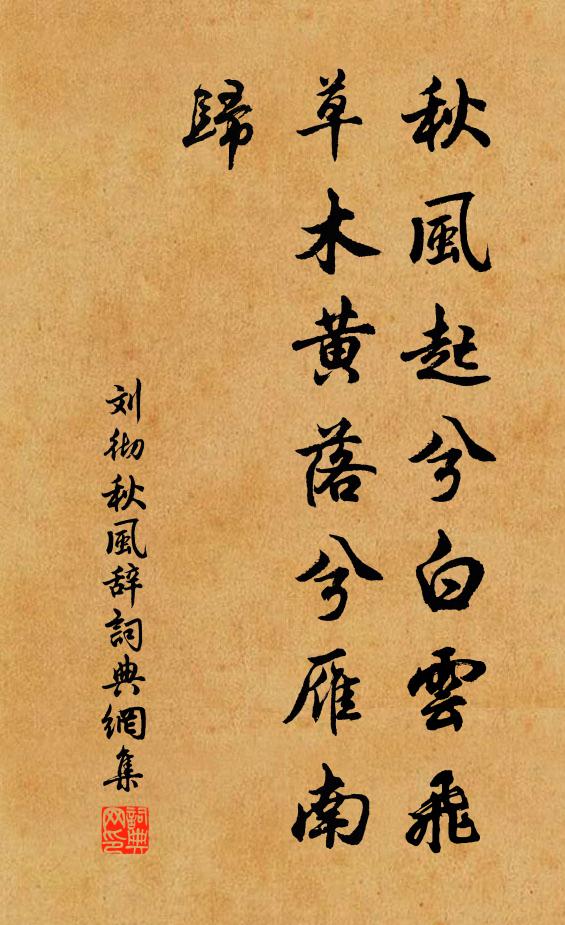 秋風起兮白雲飛
草木黄落兮雁南
歸
刘彻秋風辞詞典網集
詞典
网印